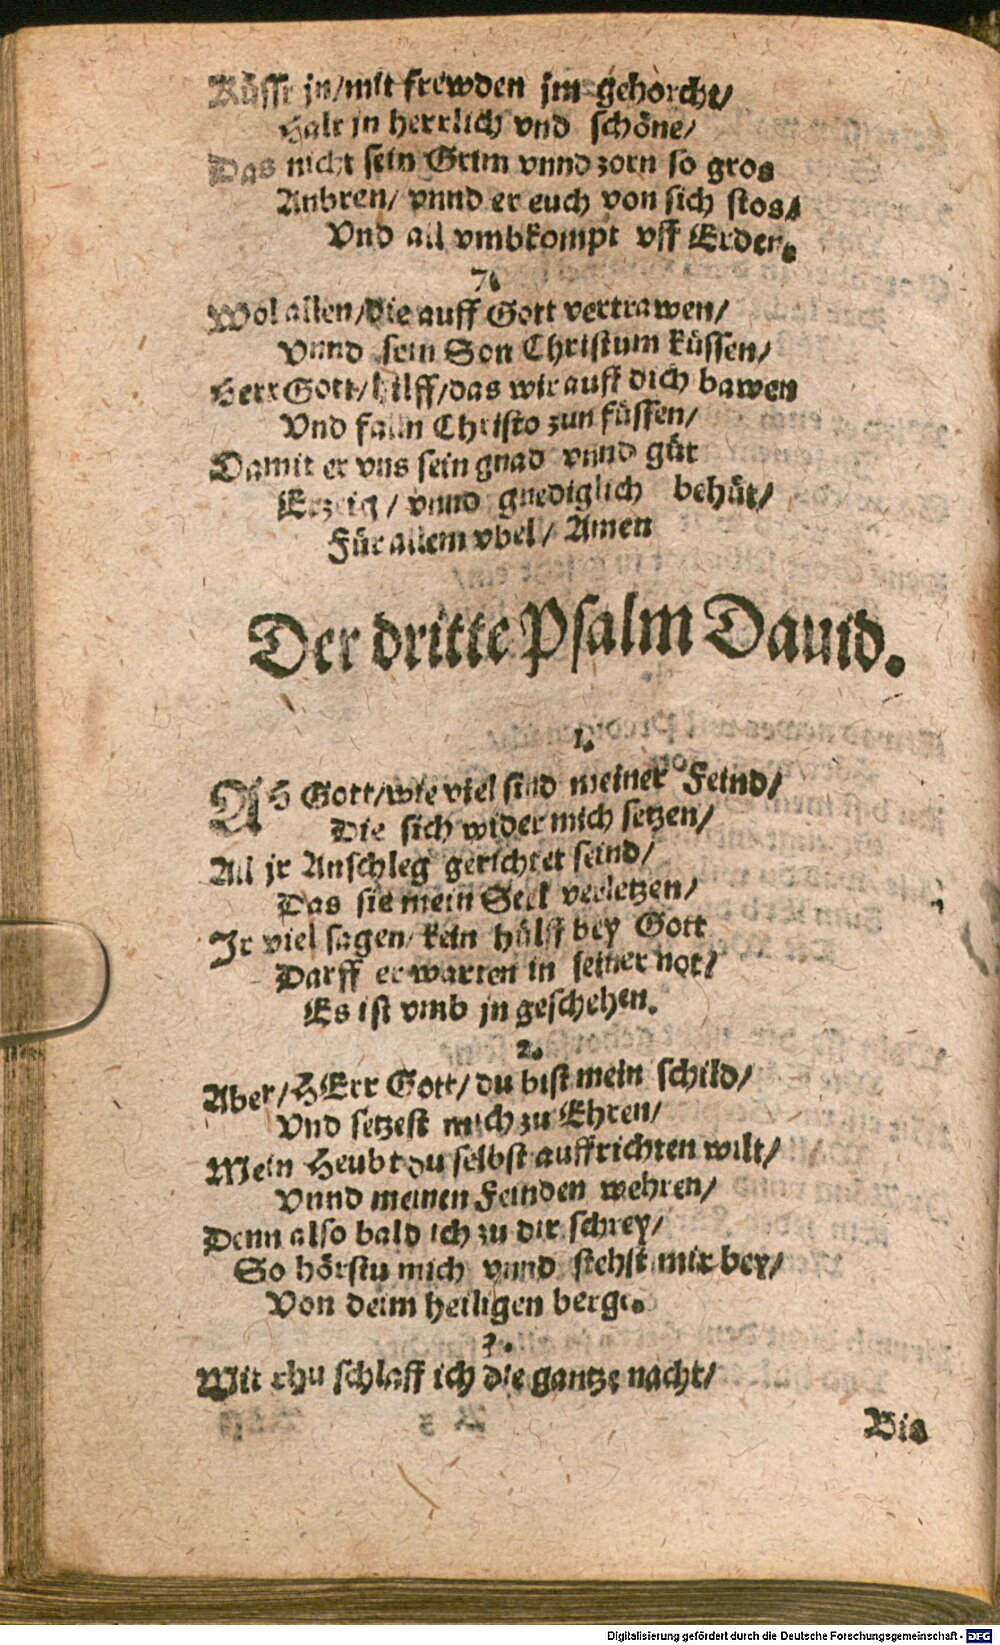 Küsst jn/mit frewden jm gehorcht/
Halt jn herrlich vnd schöne/
Das nicht sein Grim vnnd zorn so gros
Anbren/ vnnd er euch von sich stos/
Vnd all vmbkompt vff Erden.
7.
Wol allen/die auff Gott vertrawen/
Vnnd sein Son Christum küssen/
Herr Gott/hilff/das wir auff dich bawen
Vnd falln Christo zun füssen/
Damit er vns sein gnad vnnd güt
Erzeig/ vnnd gnediglich behüt/
Für allem vbel/ Amen
Der dritte Psalm Dauid.
1.
AH Gott/wie viel sind meiner Feind/
Die sich wider mich setzen/
All jr Anschleg gerichtet seind/
Das sie mein Seel verletzen/
Jr viel sagen/kein hülff bey Gott
Darff er warten in seiner not/
Es ist vmb jn geschehen.
2.
Aber/HErr Gott/ du bist mein schild/
Vnd setzest mich zu Ehren/
Mein Heubt du selbst auffrichten wilt/
Vnnd meinen Feinden wehren/
Denn also bald ich zu dir schrey/
So hörstu mich vnnd stehst mir bey/
Von deim heiligen berge.
3.
Mit rhu schlaff ich die gantze nacht/
Bis
Digitalisierung gefördert durch die Deutsche Forschungsgemeinschaft - DFG